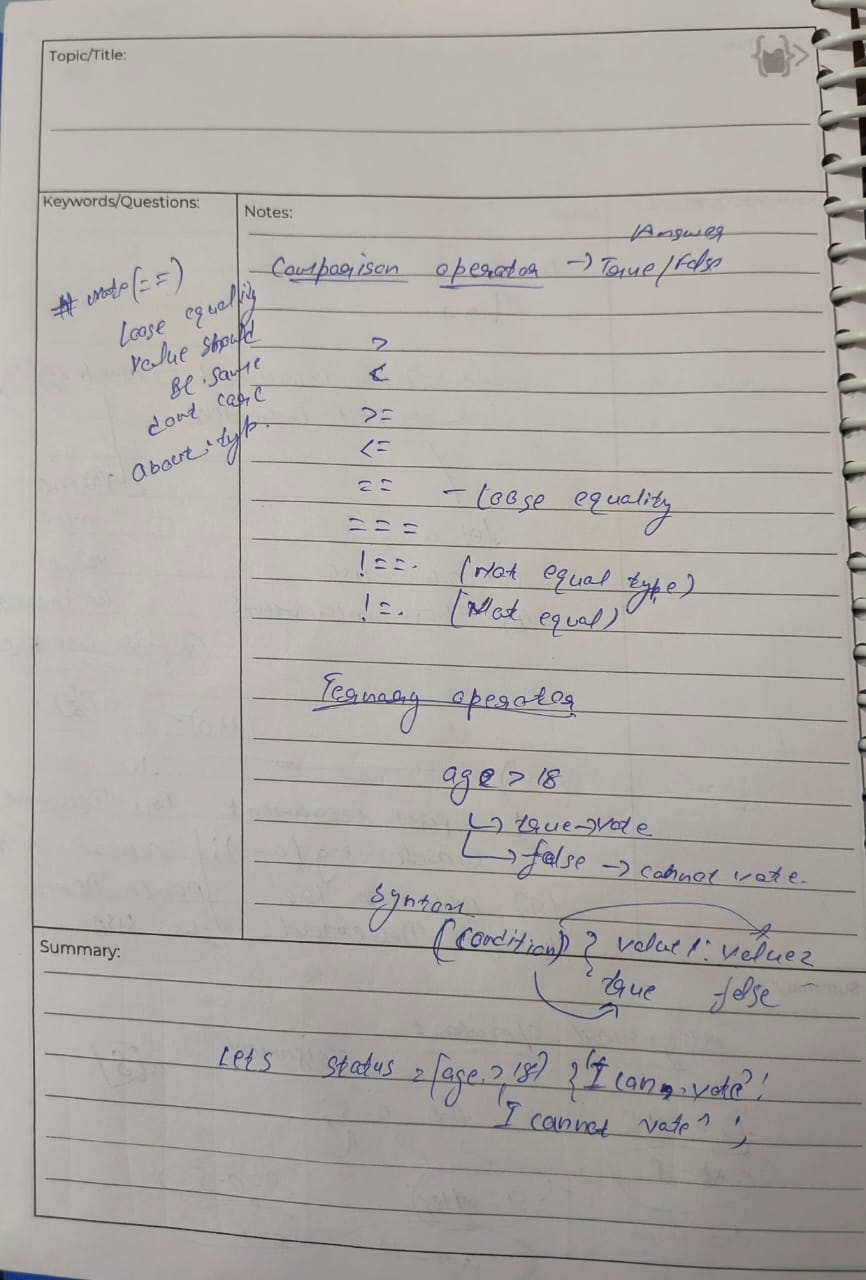 Topic/Title:
Keywords/Questions:
# note (==)
Loose equality
value should
be same
dont care
about typ.
Notes:
Answer
Comparison operator → True/False
>
<
>=
<=
== - Loose equality
===
!==. (Not equal type)
!=. (Not equal)
Ternary operator
age > 18
↳ true → vote
↳ false → cannot vote.
Syntax
(condition) ? value1 : value2
true false
Summary:
Lets status = (age > 18) ? "I can vote" :
"I cannot vote" ;